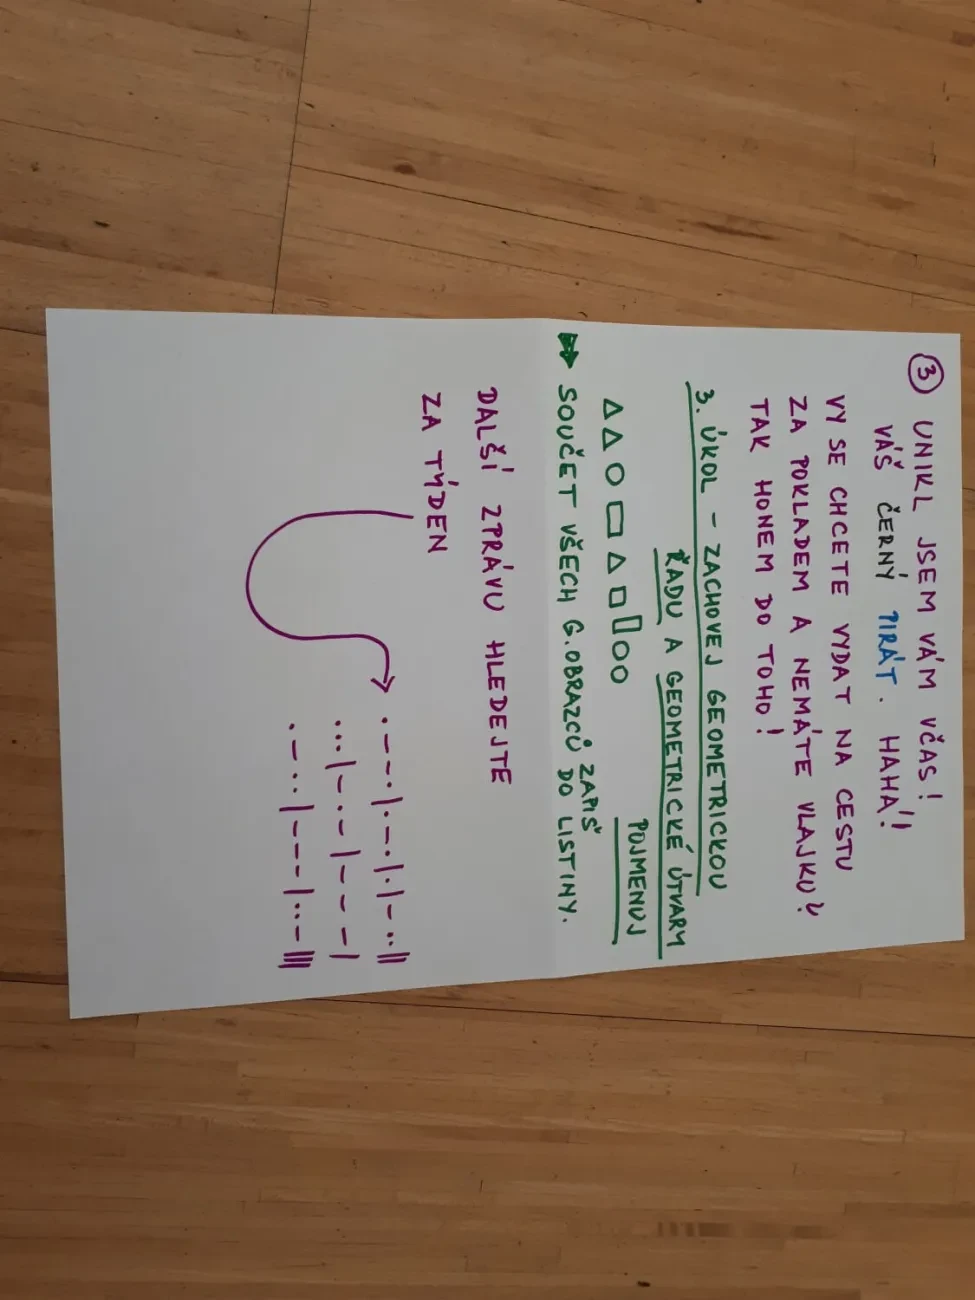 3 UNIKL JSEM VÁM VČAS!
VÁŠ ČERNÝ PIRÁT. HAHA!!
VY SE CHCETE VYDAT NA CESTU
ZA POKLADEM A NEMÁTE VLAJKU?
TAK HONEM DO TOHO!
3. ÚKOL - ZACHOVEJ GEOMETRICKOU
ŘADU A GEOMETRICKÉ ÚTVARY
POJMENUJ
ZAPIŠ
SOUČET VŠECH G.OBRAZCŮ DO LISTINY.
DALŠÍ ZPRÁVU HLEDEJTE
ZA TÝDEN
.--.|.-.|.|-..||
...|-.-|---|
.-..|---|..-|||